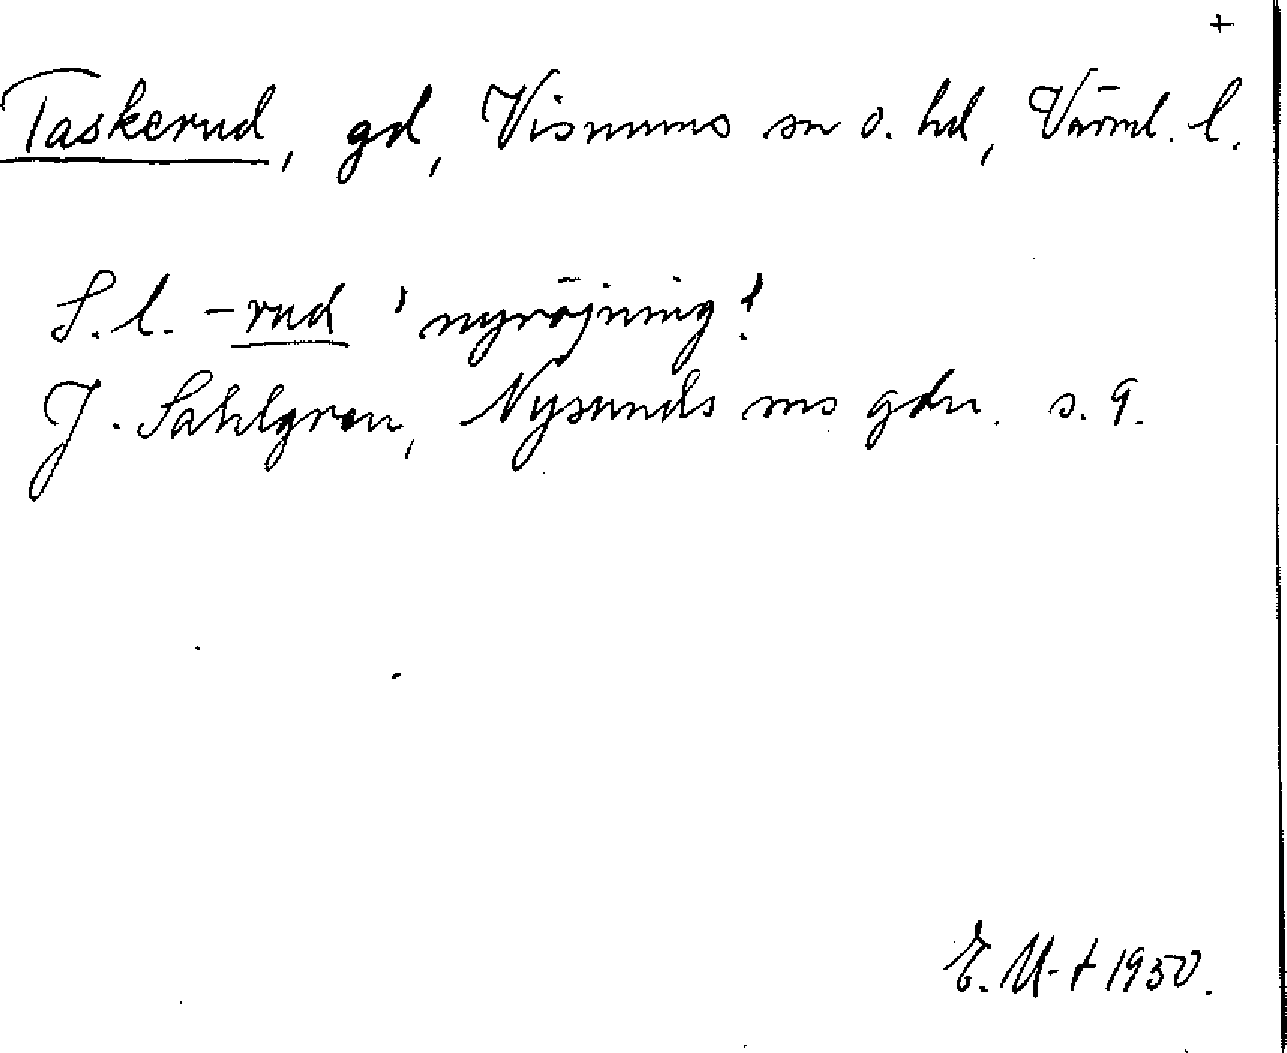 +
Taskerud, gd, Visnums sn o. hd, Värml. l.
S. l. -rud 'nyröjning'.
J. Sahlgren, Nysunds sns gdn. s. 9.
E. M-t 1950.